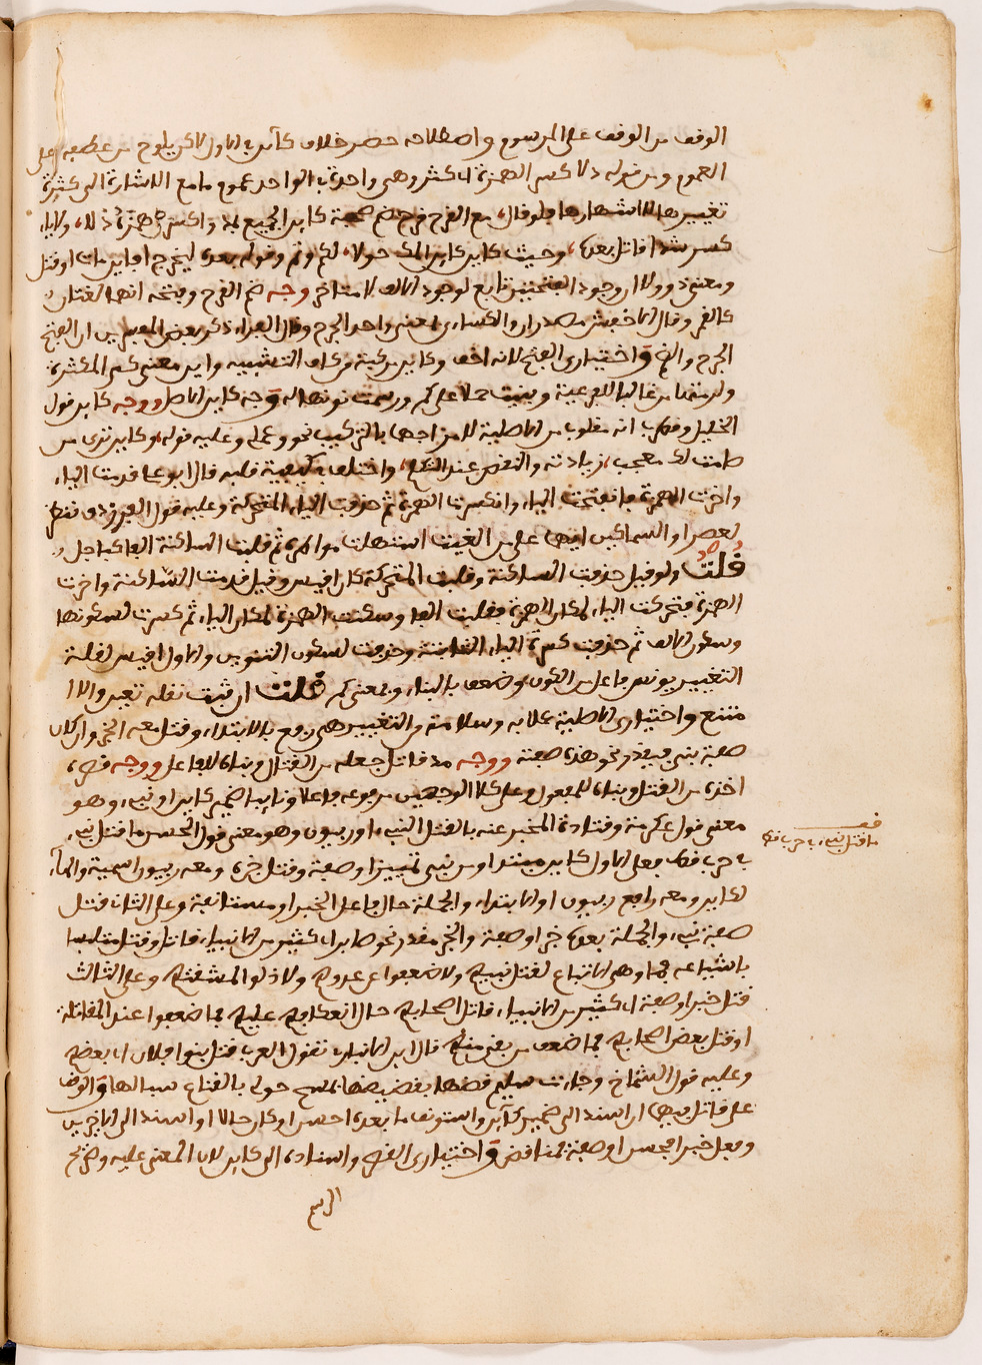 الوقف من الوقف على المرسوم واصطلاحه حصر خلاف كآين في الاول لاكن يلوح من عطفه على
العموم ومن قوله ولا كسر الهمزة اي كثر وهي واحدة في الواحد عموم ما مع الاشارة الى كثرة
تغييرها لاشتهارها فلو قال مع القرح قرح ضم صحبة كاين الجميع لمد واكسر همزة دلا ولا ياء
كسر شذا قاتل بعده وحيث كاين كاين المك حولا لكم وتم وقوله بعده ليخرج افاين مات او قتل
ومعنى ذو ولا وجود الفتحتين تابع لوجود الالف لامتداح وجه ضم القرح وفتحه انهما لغتان
كالفقر وقال الاخفش مصدران والكسائي بمعنى واحد الجرح وقال الفراء ذكر بعض المفسرين ان الفتح
الجرح والضم واختياري الفتح لانه اخف وكاين مركبة من كاف التشبيه واين بمعنى كم المكثرة
ولزمتها من غالبا للفرعية وبنيت حملا على كم ورسمت نونها له وجه كاين الاصل ووجه كاين قول
الخليل وقطرب انه مقلوب من الاصلية للامتزاجها بالتركيب نحو وعملى وعليه قوله وكاين ترى من
صامت لك معجب زيادته والنقص عند التكلم واختلف في كيفية قلبه قال ابو علي قدمت الياء
واخرت الهمزة فانفتحت الياء وانكسرت الهمزة ثم حذفت الياء المتحركة وعليه قول الفرزدق تنظرت
نصرا والسماكين ايهما على من الغيث استهلت مواطره ثم قلبت الساكنة الفا كياجل
قلت ولو قيل حذفت الساكنة وقلبت المتحركة كان اقيس وقيل قدمت الساكنة واخرت
الهمزة فتحركت الياء لمكان الهمزة فقلبت الفا وسكنت الهمزة لمكان الياء ثم كسرت لسكونها
وسكون الالف ثم حذفت كسرة الياء الثانية وحذفت لسكون التنوين والاول اقيس لقلة
التغيير يونس فاعل من الكون وضعف بالبناء وبمعنى كم قلت ان ثبت نقله تعين والا
متنع واختياري الاصلية عملا به وسلامة من التغيير هي رفع بالابتداء وقتل معه الخبر وان كان
صفة نبي فيقدر نحو هذه صفته ووجه مد قاتل جعله من القتال وبناه للفاعل ووجه قصره
اخذه من القتل وبناه للمفعول وعلى كلا الوجهين مرفوعه فاعلا ونايبا ضمير كاين او نبي وهو
معنى قول عكرمة وقتادة المخبر عنه بالقتل النبي او ربيون وهو معنى قول الحسن ما قتل نبي
في حرب قط فعلى الاول كاين مبتدا ومن نبي تمييز او صفة وقتل خبره ومعه ربيون اسمية والهاء
لكاين ومعه رافع ربيون او الابتداء والجملة حال فاعل الخبر او مستانفة وعلى الثاني قتل
صفة نبي والجملة بعده خبر او صفة والخبر مقدر نحو صابر اي كثير من الانبياء قاتل وقتل متلبسا
باشياعه فما وهى الاتباع لقتل نبيهم ولا ضعفوا عن عدوهم ولا ذلوا لمشقتهم وعلى الثالث
قتل خبر او صفة اي كثير من الانبياء قاتل اصحابهم حال انعكافهم عليهم فما ضعفوا عند المقاتلة
او قتل بعض اصحابهم فما ضعف من بقي منهم قال ابن الانباري تقول العرب قتل بنو فلان اي بعضهم
وعليه قول الشماخ وجاءت سليم قضها بقضيضها تمسح حولي بالبقاع سبالها والوقف
على قاتل فيهما ان اسند الى ضمير كاين واستونف ما بعده احسن او كان حالا او اسند الى الاخرين
وفعل خبر افحسن او صفة فناقص واختياري القصر واسناده الى كاين لان المعنى عليه وصريح
الرسم
ما قتل نبي في حرب قط